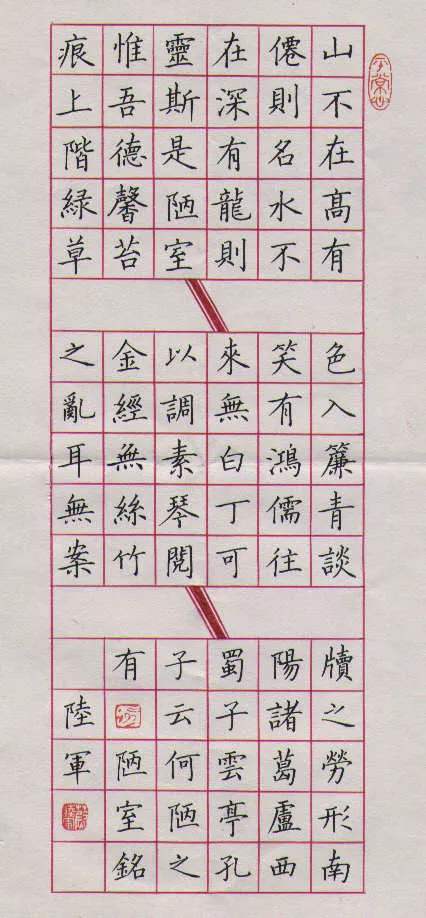 山不在髙有
僊則名水不
在深有龍則
靈斯是陋室
惟吾德馨苔
痕上階緑草
色入簾青談
笑有鴻儒往
來無白丁可
以調素琴閱
金經無絲竹
之亂耳無案
牘之勞形南
陽諸葛廬西
蜀子雲亭孔
子云何陋之
有 陋室銘
陸軍